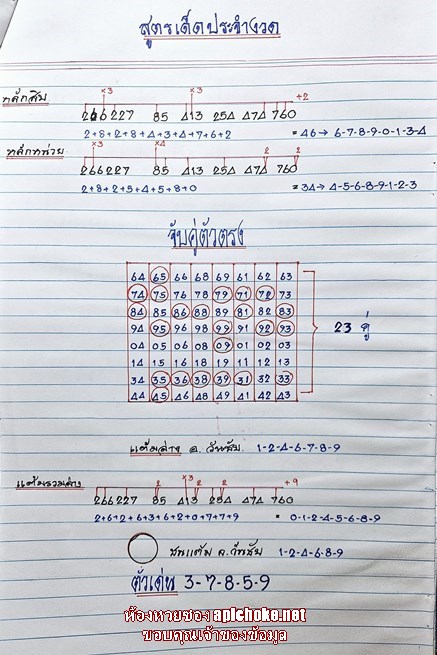 สูตรเด็ดประจำงวด
หลักสิบ
×3 ×3 +2
266227 85 413 254 474 760
2+8+2+8+4+3+4+7+6+2 = 46 → 6-7-8-9-0-1-3-4
หลักหน่วย
×3 ×4 2 2
266227 85 413 254 474 760
2+8+2+5+4+5+8+0 = 34 → 4-5-6-8-9-1-2-3
จับคู่ตัวตรง
64 65 66 68 69 61 62 63
74 75 76 78 79 71 72 73
84 85 86 88 89 81 82 83
94 95 96 98 99 91 92 93
04 05 06 08 09 01 02 03
14 15 16 18 19 11 12 13
34 35 36 38 39 31 32 33
44 45 46 48 49 41 42 43
23 คู่
แต้มล่าง อ.วันชัย 1-2-4-6-7-8-9
แต้มรวมล่าง
2 ×3 2 2 +9
266227 85 413 254 474 760
2+6+2+6+3+6+2+0+7+7+9 = 0-1-2-4-5-6-8-9
ชนแต้ม อ.วันชัย 1-2-4-6-8-9
ตัวเด่น 3-7-8-5-9
ห้องหวยซอง apichoke.net
ขอบคุณเจ้าของข้อมูล